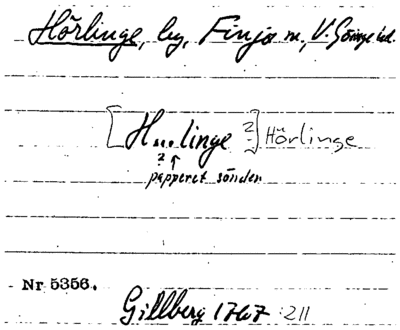 Hörlinge, by, Finja sn, V. Göinge hd.
[H...linge ?] Hörlinge
?
papperet sönder
Nr 5356.
Gillberg 1767 :211